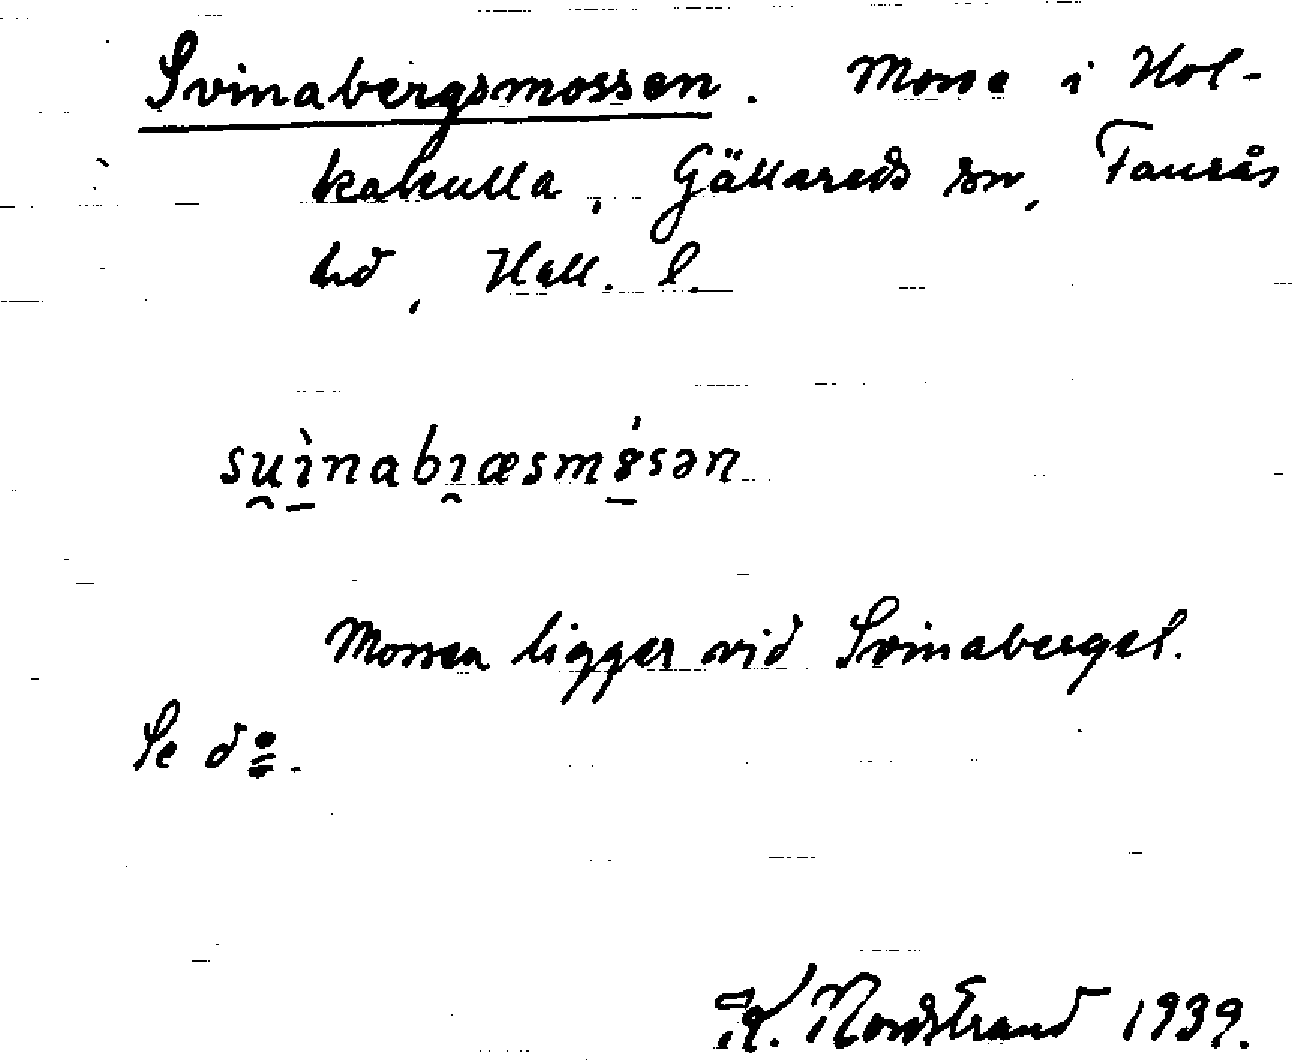 Svinabergsmossen. Mosse i Hol-
kakulla, Gällareds sn, Faurås
hd, Hall. l.
su̯ìnabı̯æsmósən
Mossen ligger vid Svinaberget.
Se do.
K. Nordstrand 1939.